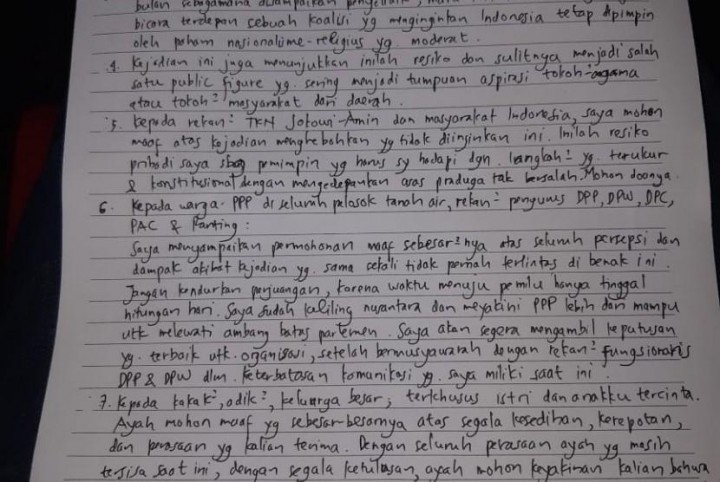 bulan sebagaimana disampaikan
bicara terdepan sebuah koalisi yg menginginkan Indonesia tetap dipimpin
oleh paham nasionalisme-religius yg moderat.
4. Kejadian ini juga menunjukkan inilah resiko dan sulitnya menjadi salah
satu public figure yg. sering menjadi tumpuan aspirasi tokoh²agama
atau tokoh² masyarakat dari daerah.
5. Kepada rekan² TKN Jokowi-Amin dan masyarakat Indonesia, saya mohon
maaf atas kejadian menghebohkan yg tidak diinginkan ini. Inilah resiko
pribadi saya sbg pemimpin yg harus sy hadapi dgn. langkah² yg. terukur
& konstitusional dengan mengedepankan asas praduga tak bersalah. Mohon doanya.
6. Kepada warga PPP di seluruh pelosok tanah air, rekan² pengurus DPP, DPW, DPC,
PAC & Ranting :
Saya menyampaikan permohonan maaf sebesar²nya atas seluruh persepsi dan
dampak akibat kejadian yg. sama sekali tidak pernah terlintas di benak ini.
Jangan kendurkan perjuangan, karena waktu menuju pemilu hanya tinggal
hitungan hari. Saya sudah keliling nusantara dan meyakini PPP lebih dari mampu
utk melewati ambang batas parlemen. Saya akan segera mengambil keputusan
yg. terbaik utk. organisasi, setelah bermusyawarah dengan rekan² fungsionaris
DPP & DPW dlm. keterbatasan komunikasi yg. saya miliki saat ini.
7. Kepada kakak², adik², keluarga besar, terkhusus istri dan anakku tercinta.
Ayah mohon maaf yg sebesar-besarnya atas segala kesedihan, kerepotan,
dan perasaan yg kalian terima. Dengan seluruh perasaan ayah yg masih
tersisa saat ini, dengan segala ketulusan, ayah mohon keyakinan kalian bahwa